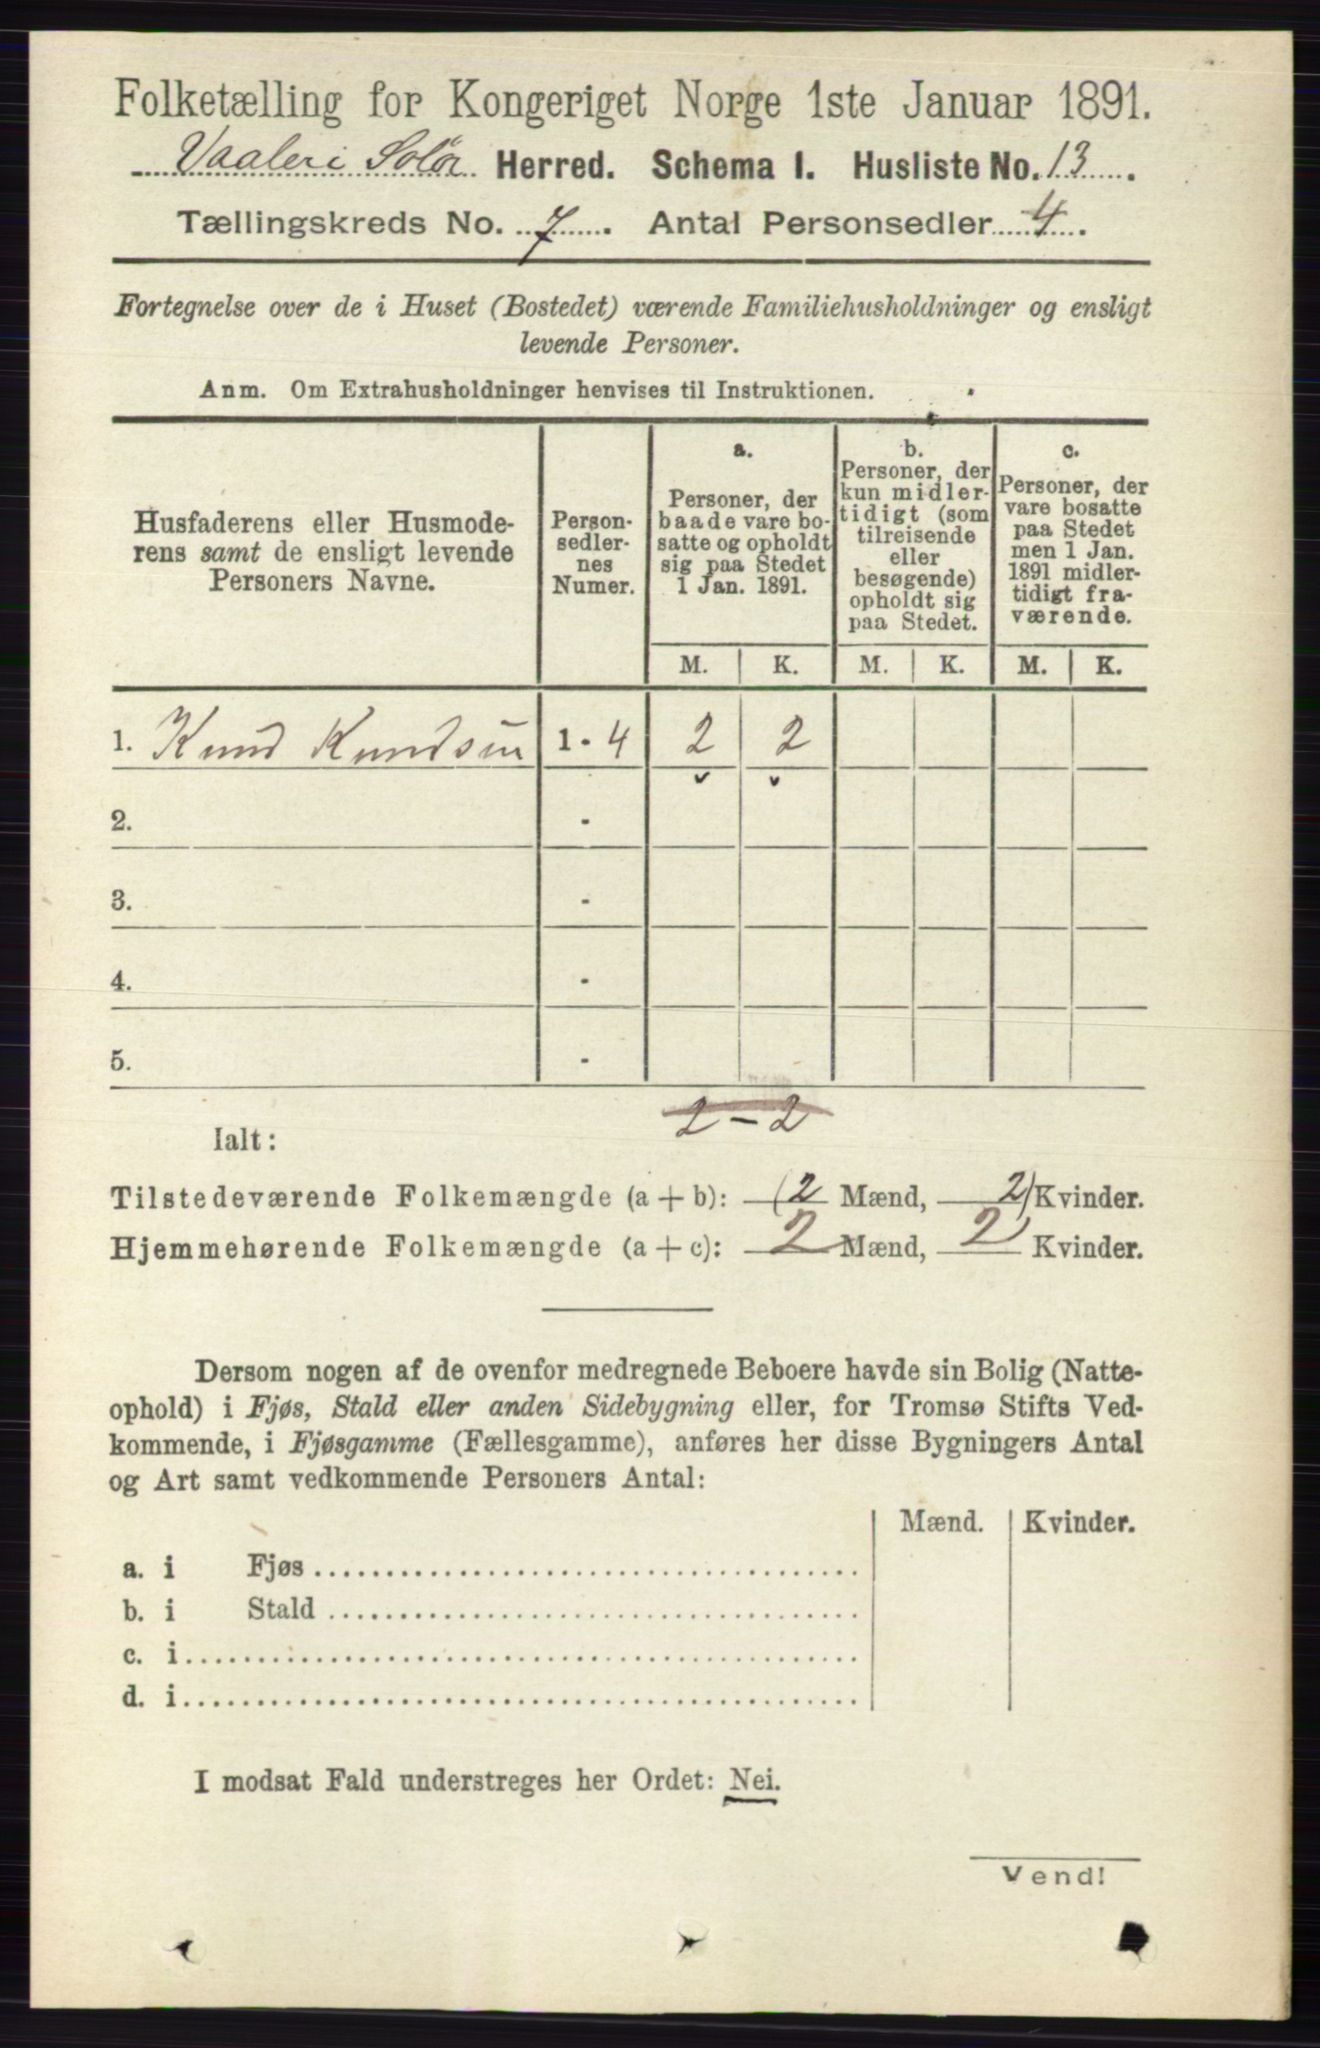 Folketælling for Kongeriget Norge 1ste Januar 1891.
Vaaler i Solør Herred. Schema 1. Husliste No. 13.
Tællingskreds No. 7. Antal Personsedler 4.
Fortegnelse over de i Huset (Bostedet) værende Familiehusholdninger og ensligt
levende Personer.
Anm. Om Extrahusholdninger henvises til Instruktionen.
Husfaderens eller Husmode-
rens samt de ensligt levende
Personers Navne.
Person-
sedler-
nes
Numer.
a.
Personer, der
baade vare bo-
satte og opholdt
sig paa Stedet
1 Jan. 1891.
b.
Personer, der
kun midler-
tidigt (som
tilreisende
eller
besøgende)
opholdt sig
paa Stedet.
c.
Personer, der
vare bosatte
paa Stedet
men 1 Jan.
1891 midler-
tidigt fra-
værende.
M. K. M. K. M. K.
1. Knud Knudsen 1 - 4 2 2
2. -
3. -
4. -
5. -
2 - 2
Ialt:
Tilstedeværende Folkemængde (a + b): (2 Mænd, 2) Kvinder.
Hjemmehørende Folkemængde (a + c): 2 Mænd, 2 Kvinder.
Dersom nogen af de ovenfor medregnede Beboere havde sin Bolig (Natte-
ophold) i Fjøs, Stald eller anden Sidebygning eller, for Tromsø Stifts Ved-
kommende, i Fjøsgamme (Fællesgamme), anføres her disse Bygningers Antal
og Art samt vedkommende Personers Antal:
Mænd. Kvinder.
a. i Fjøs
b. i Stald
c. i
d. i
I modsat Fald understreges her Ordet: Nei.
Vend!